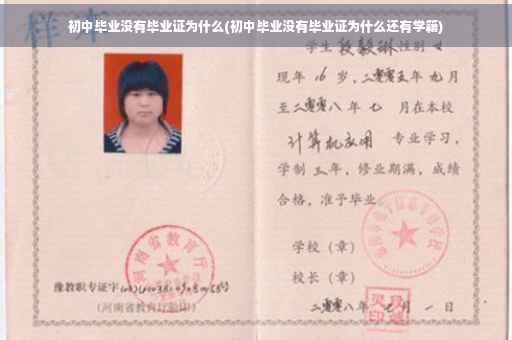 样本
初中毕业没有毕业证为什么(初中毕业没有毕业证为什么还有学籍)
学生 段毅琳 性别 女
现年 16 岁，二零零五年 九月
至二零零八年 七 月在本校
计算机应用 专业学习，
学制 三 年，修业期满，成绩
合格，准予毕业
学校（章）
河南省教育厅
校长（章）
豫教职专证字
(河南省教育厅验印)
二零零八年 七 月 一 日